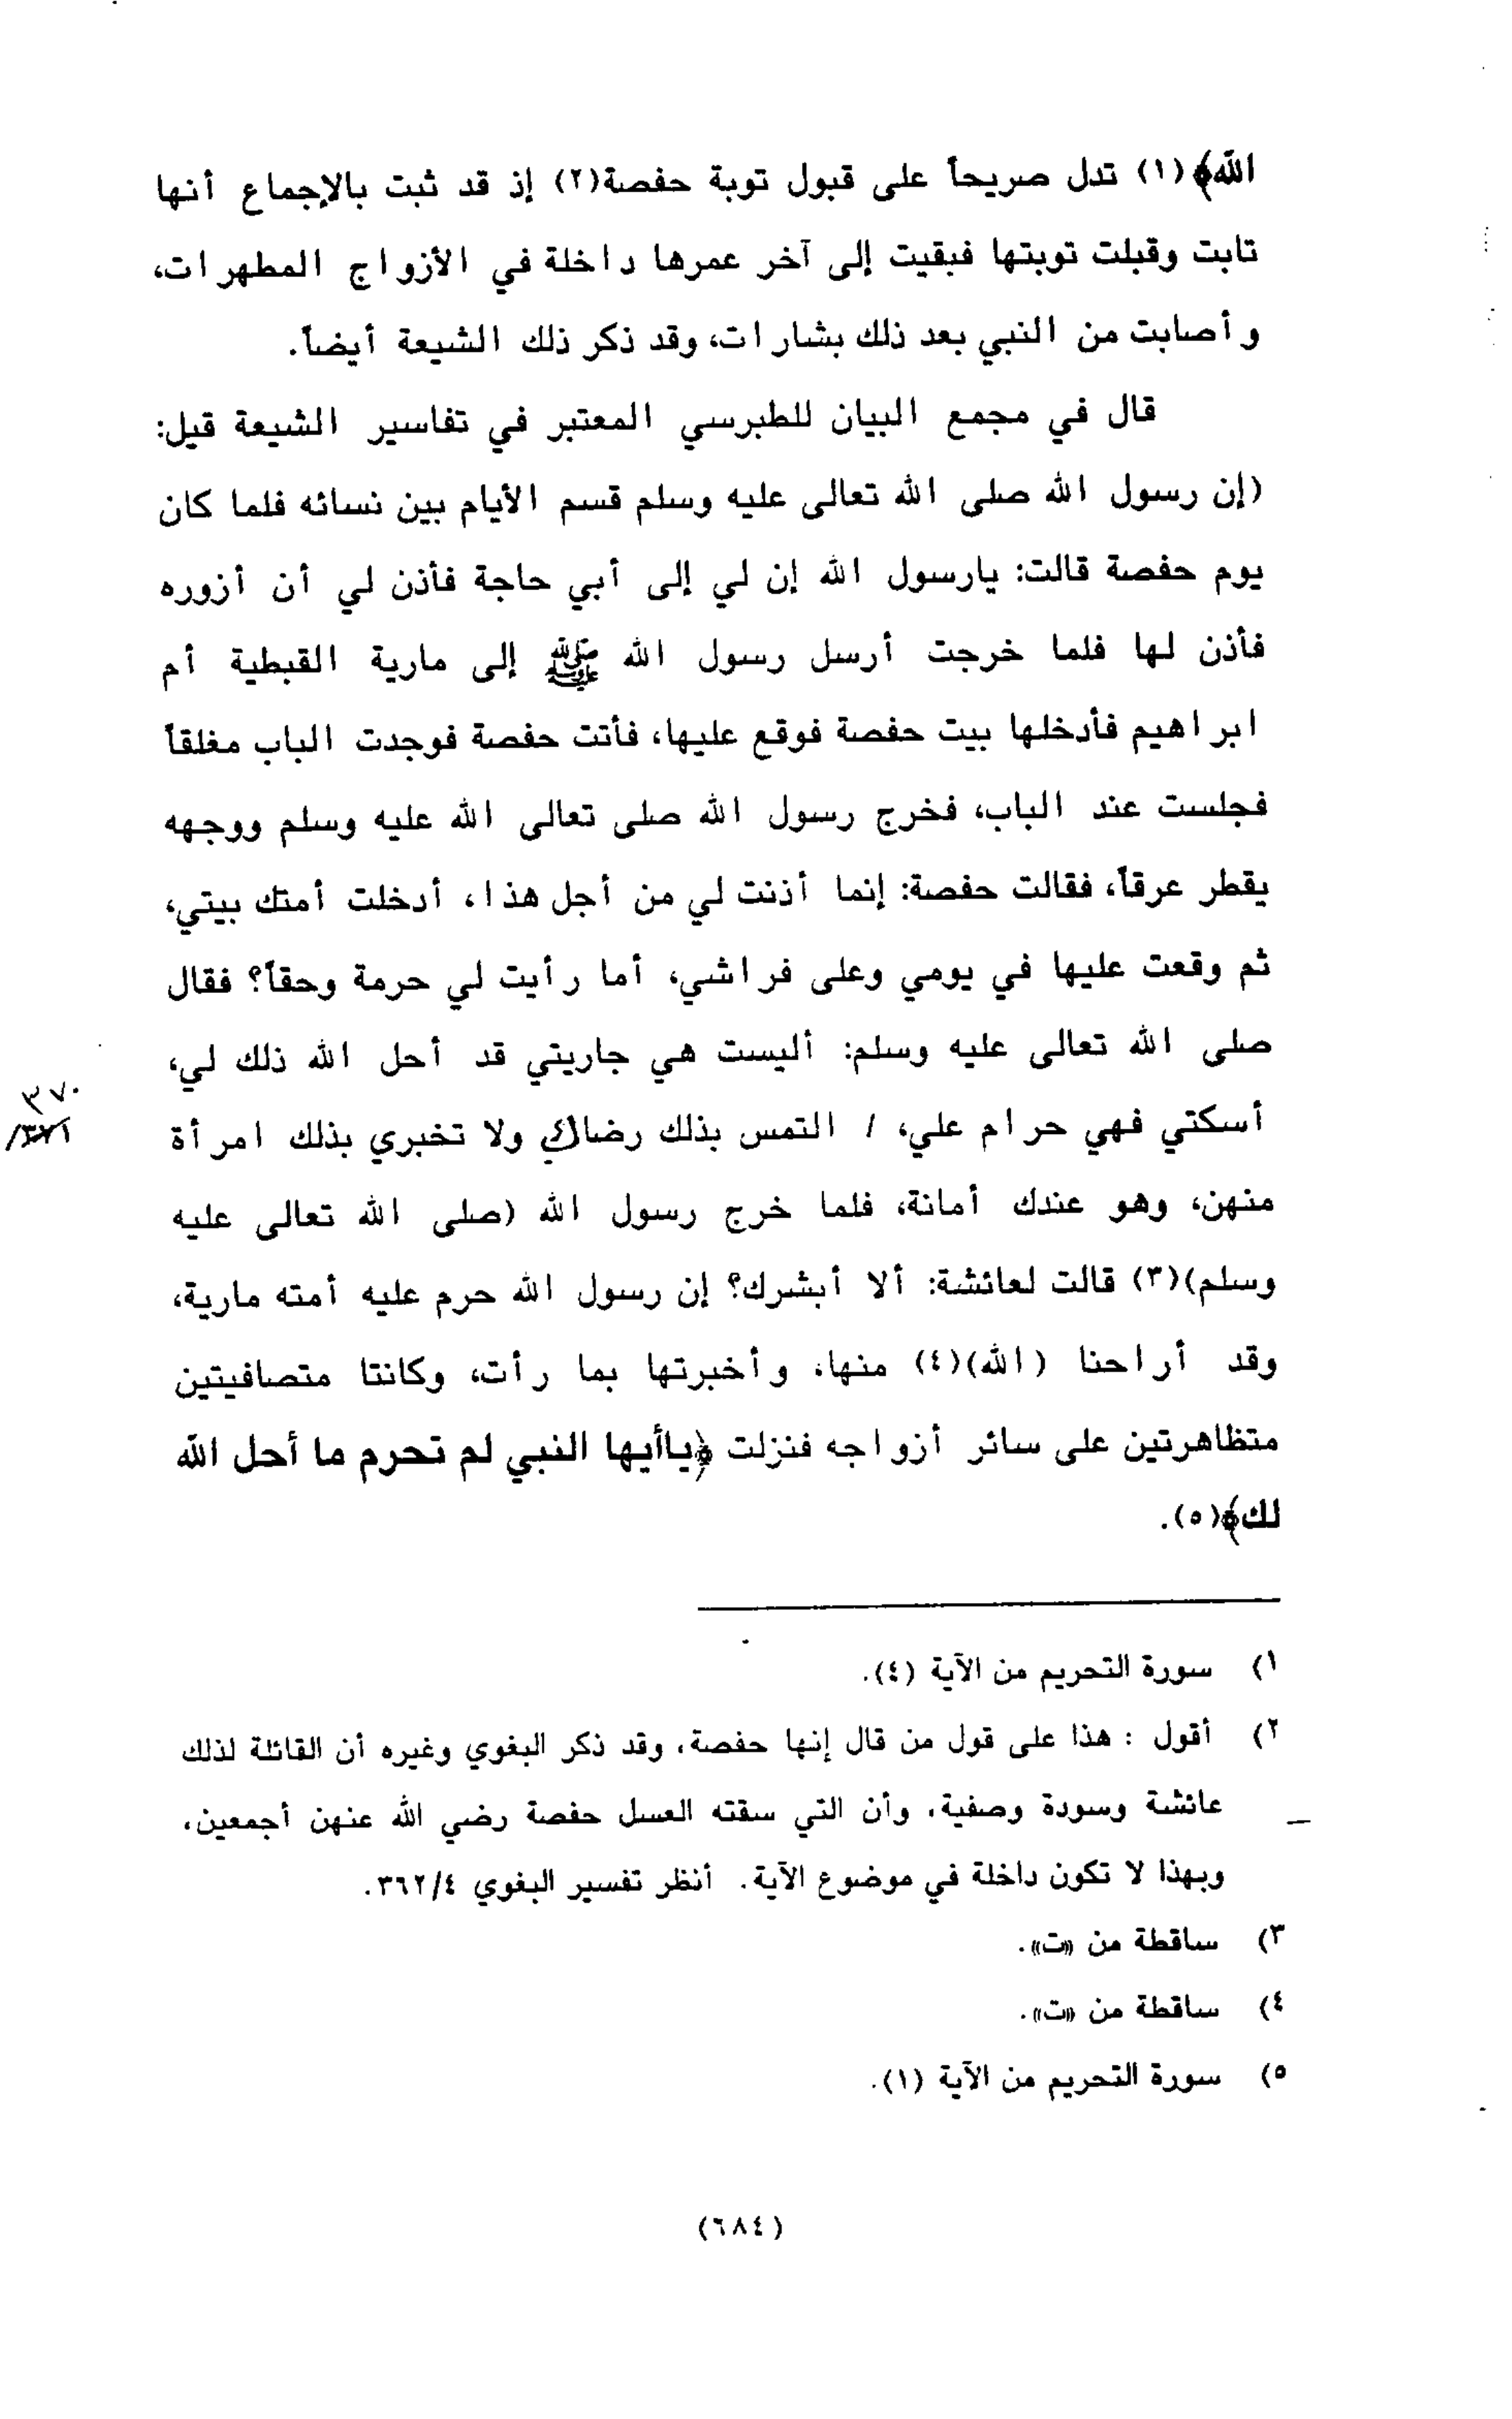 الله﴾(١) تدل صريحاً على قبول توبة حفصة(٢) إذ قد ثبت بالإجماع أنها
تابت وقبلت توبتها فبقيت إلى آخر عمرها داخلة في الأزواج المطهرات،
وأصابت من النبي بعد ذلك بشارات، وقد ذكر ذلك الشيعة أيضاً.
قال في مجمع البيان للطبرسي المعتبر في تفاسير الشيعة قيل:
(إن رسول الله صلى الله تعالى عليه وسلم قسم الأيام بين نسائه فلما كان
يوم حفصة قالت: يارسول الله إن لي إلى أبي حاجة فأذن لي أن أزوره
فأذن لها فلما خرجت أرسل رسول الله ﷺ إلى مارية القبطية أم
ابراهيم فأدخلها بيت حفصة فوقع عليها، فأتت حفصة فوجدت الباب مغلقاً
فجلست عند الباب، فخرج رسول الله صلى تعالى الله عليه وسلم ووجهه
يقطر عرقاً، فقالت حفصة: إنما أذنت لي من أجل هذا، أدخلت أمتك بيتي،
ثم وقعت عليها في يومي وعلى فراشي، أما رأيت لي حرمة وحقاً؟ فقال
صلى الله تعالى عليه وسلم: أليست هي جاريتي قد أحل الله ذلك لي،
أسكتي فهي حرام علي، / التمس بذلك رضاك ولا تخبري بذلك امرأة
٣٧٠
٣٧١/
منهن، وهو عندك أمانة، فلما خرج رسول الله (صلى الله تعالى عليه
وسلم)(٣) قالت لعائشة: ألا أبشرك؟ إن رسول الله حرم عليه أمته مارية،
وقد أراحنا (الله)(٤) منها، وأخبرتها بما رأت، وكانتا متصافيتين
متظاهرتين على سائر أزواجه فنزلت ﴿ياأيها النبي لم تحرم ما أحل الله
لك﴾(٥).
١) سورة التحريم من الآية (٤).
٢) أقول : هذا على قول من قال إنها حفصة، وقد ذكر البغوي وغيره أن القائلة لذلك
عائشة وسودة وصفية، وأن التي سقته العسل حفصة رضي الله عنهن أجمعين،
وبهذا لا تكون داخلة في موضوع الآية. أنظر تفسير البغوي ٣٦٢/٤.
٣) ساقطة من «ت».
٤) ساقطة من «ت».
٥) سورة التحريم من الآية (١).
(٦٨٤)